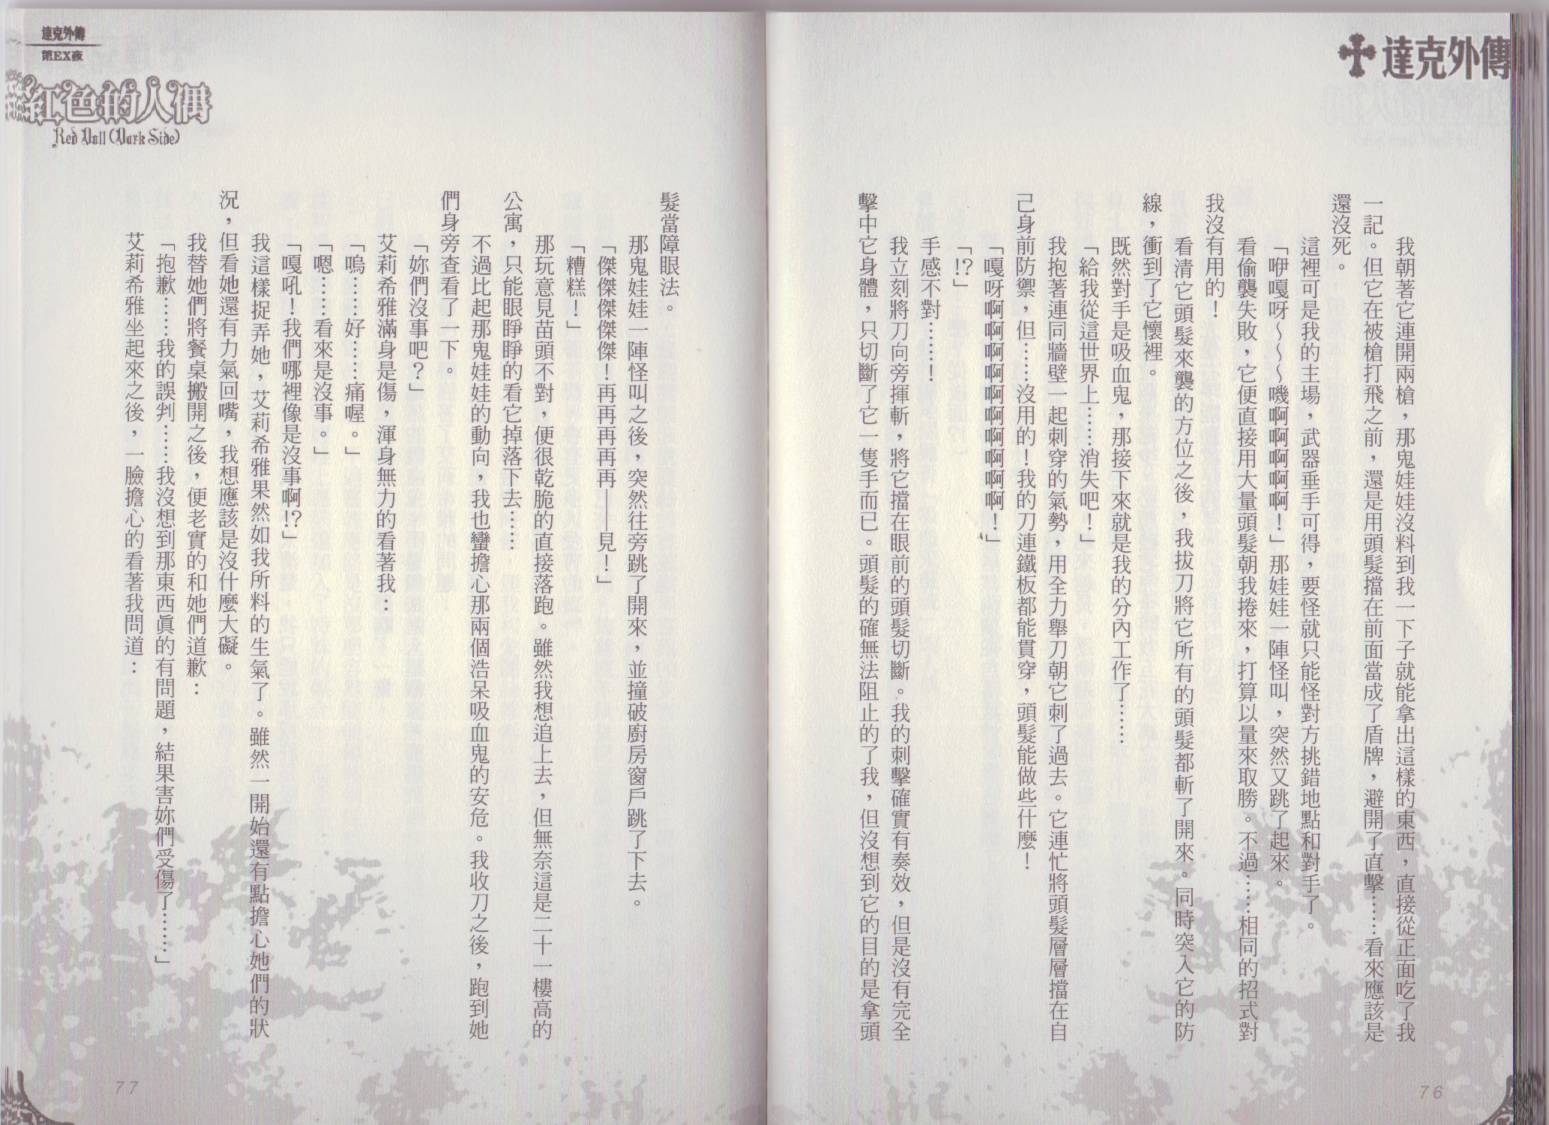 達克外傳
我朝著它連開兩槍，那鬼娃娃沒料到我一下子就能拿出這樣的東西，直接從正面吃了我
一記。但它在被槍打飛之前，還是用頭髮擋在前面當成了盾牌，避開了直擊……看來應該是
還沒死。
這裡可是我的主場，武器垂手可得，要怪就只能怪對方挑錯地點和對手了。
「咿嘎呀～～～嘰啊啊啊啊！」那娃娃一陣怪叫，突然又跳了起來。
看偷襲失敗，它便直接用大量頭髮朝我捲來，打算以量來取勝。不過……相同的招式對
我沒有用的！
看清它頭髮來襲的方位之後，我拔刀將它所有的頭髮都斬了開來。同時突入它的防
線，衝到了它懷裡。
既然對手是吸血鬼，那接下來就是我的分內工作了……
「給我從這世界上……消失吧！」
我抱著連同牆壁一起刺穿的氣勢，用全力舉刀朝它刺了過去。它連忙將頭髮層層擋在自
己身前防禦，但……沒用的！我的刀連鐵板都能貫穿，頭髮能做些什麼！
「嘎呀啊啊啊啊啊啊啊啊啊啊！」
「!?」
手感不對……！
我立刻將刀向旁揮斬，將它擋在眼前的頭髮切斷。我的刺擊確實有奏效，但是沒有完全
擊中它身體，只切斷了它一隻手而已。頭髮的確無法阻止的了我，但沒想到它的目的是拿頭
76
達克外傳
第EX夜
紅色的人偶
Red Doll (Dark Side)
髮當障眼法。
那鬼娃娃一陣怪叫之後，突然往旁跳了開來，並撞破廚房窗戶跳了下去。
「傑傑傑傑傑！再再再再再——見！」
「糟糕！」
那玩意見苗頭不對，便很乾脆的直接落跑。雖然我想追上去，但無奈這是二十一樓高的
公寓，只能眼睜睜的看它掉落下去……
不過比起那鬼娃娃的動向，我也蠻擔心那兩個浩呆吸血鬼的安危。我收刀之後，跑到她
們身旁查看了一下。
「妳們沒事吧？」
艾莉希雅滿身是傷，渾身無力的看著我：
「嗚……好……痛喔。」
「嗯……看來是沒事。」
「嘎吼！我們哪裡像是沒事啊!?」
我這樣捉弄她，艾莉希雅果然如我所料的生氣了。雖然一開始還有點擔心她們的狀
況，但看她還有力氣回嘴，我想應該是沒什麼大礙。
我替她們將餐桌搬開之後，便老實的和她們道歉：
「抱歉……我的誤判……我沒想到那東西真的有問題，結果害妳們受傷了……」
艾莉希雅坐起來之後，一臉擔心的看著我問道：
77